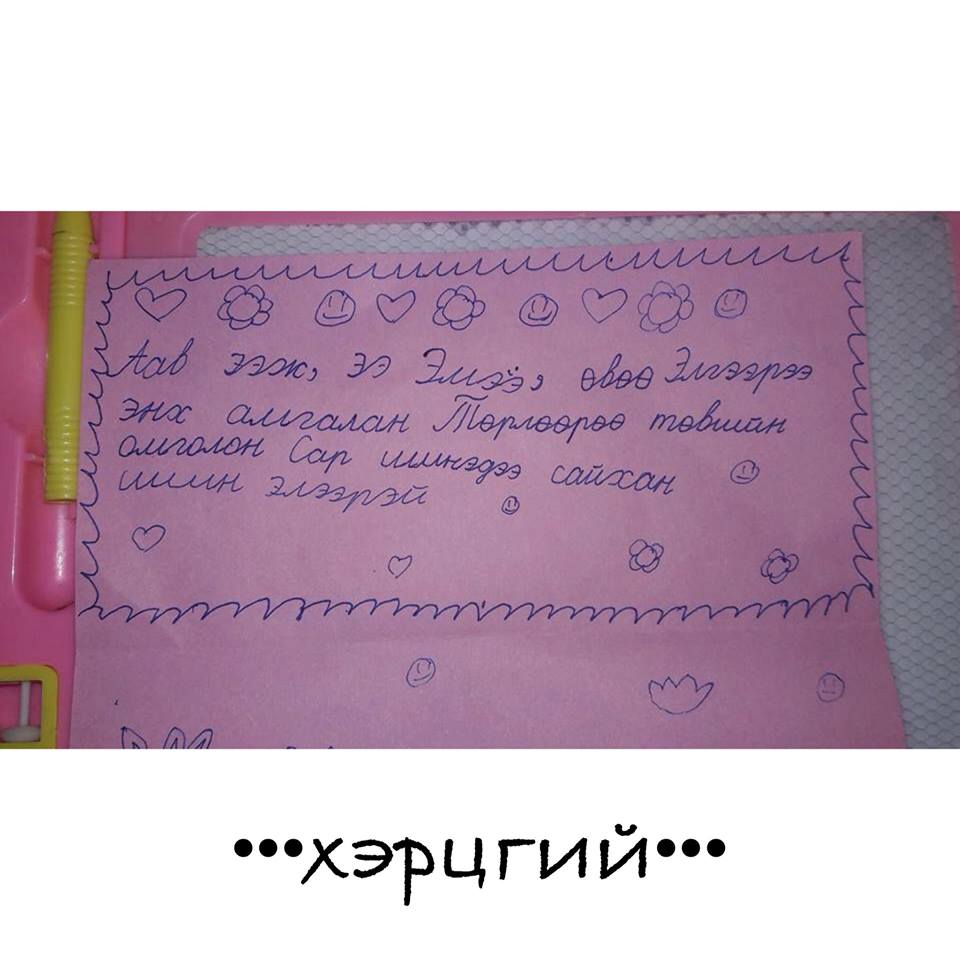 Аав ээж, ээ Эмээ, өвөө Элгээрээ
энх амгалан Төрлөөрөө төвшин
омголон Сар шинэдээ сайхан
шинэ элээрэй
•••хэрцгий•••